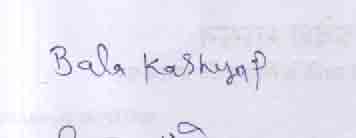 Bala Kashyap